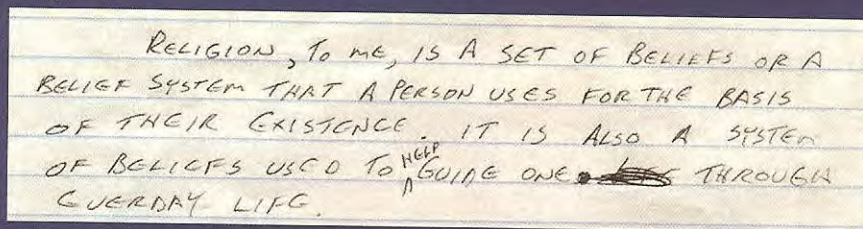 RELIGION, TO ME, IS A SET OF BELIEFS OR A
BELIEF SYSTEM THAT A PERSON USES FOR THE BASIS
OF THEIR EXISTENCE. IT IS ALSO A SYSTEM
OF BELIEFS USED TO HELP GUIDE ONE THROUGH
EVERDAY LIFE.